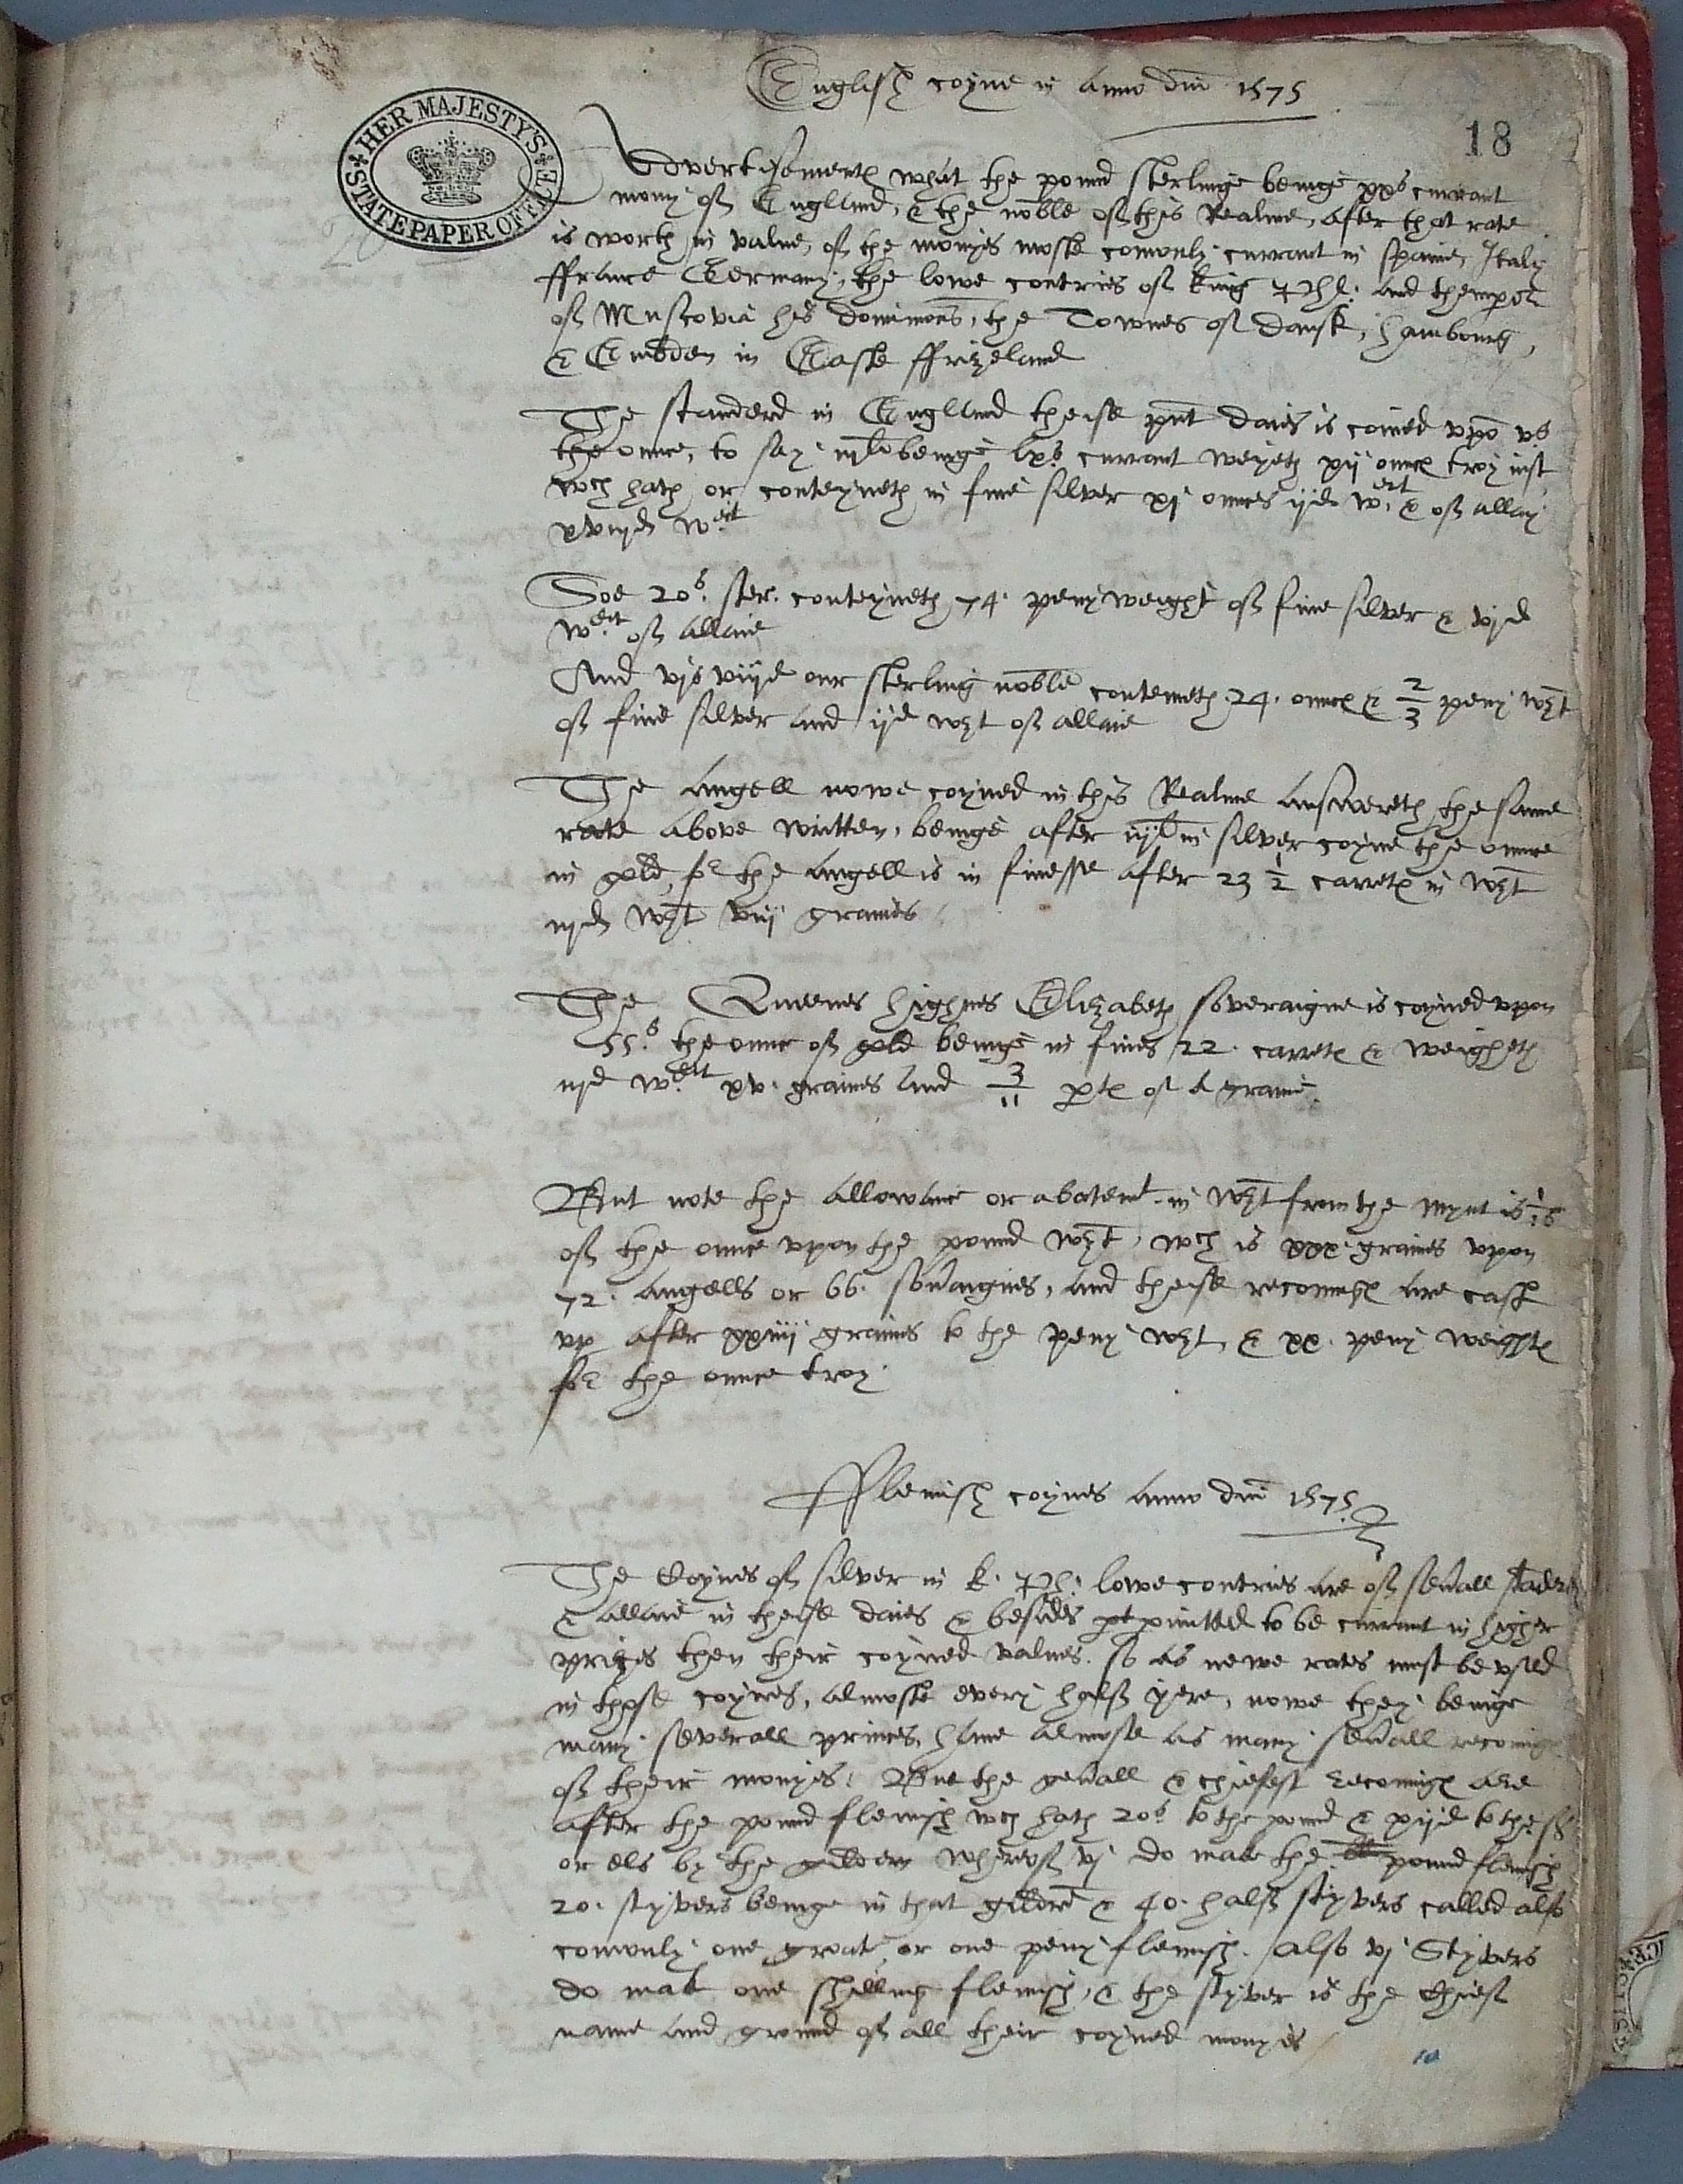 English coyne in anno dni 1575
18
HER MAJESTY'S STATE PAPER OFFICE
20
Advertisements what the pound sterlinge beinge xxs currant
mony of England, & the noble of this Realme, after that rate
is worth in value, of the monyes moste comonly currant in Spaine, Italy
ffrance Germany, the lowe contries of king Phl: and themper
of Muscovia his dominions, the Townes of Dansk, Hambourg,
& Embden in Easte ffrizeland
The standerd in England theise pnt daies is coined vpo vs
the ounce, to say iijl beinge lxs currant weyeth xij ounces troy iust
wch hath or conteyneth in fine silver xj ounces ijd weit & of allay
xviijd weit
Soe 20s. ster. conteyneth 74. peny weight of fine silver & vjd
weit of allaie
And vjs viijd our sterling noble conteineth 24. ounces & 2/3 peny wgt
of fine silver and ijd wgt of allaie
The Angell nowe coyned in this Realme answereth the same
rate above written, beinge after iijl in silver coyne the ounce
in gold, for the angell is in finesse after 23 1/2 carretes in wgt
iijd wgt viij graines
The Queenes highnes Elizabeth soveraigne is coyned vpon
55s. the ounce of gold beinge in fines 22. carretes & weigheth
iijd weit xv. graines and 3/11 ptes of a graine.
But note the allowance or abatemt. in wgt from the mynt is 1/16
of the ounce vpon the pound wgt, wch is xxx. graines vpon
72. angells or 66. sovaignes, and theise reconings are cast
vp after xxiiij graines to the peny wgt, & xx. peny weightes
for the ounce troy.
fflemish coynes anno dni 1575.
The Coynes of silver in k. Ph: lowe contries are of sevall staderd
& allaie in theise daies & besides pmitted to be currant in higher
prizes then their coyned values. so as newe rates must be vsed
in those coynes, almoste every half yere, nowe they beinge
many severall princes, have almost as many sevall reconings
of their monyes: But the gevall & chiefest reconings are
after the pound flemish wch hath 20s to the pound & xijd to the sh
or els by the guldern wherof vj do make the pound flemish
20. styvers beinge in that gildrē & 40. half styvers called also
comonly one groat, or one peny flemish. Also vj Styvers
do make one shilling flemish, & the styver is the chief
name and ground of all their coyned monyes